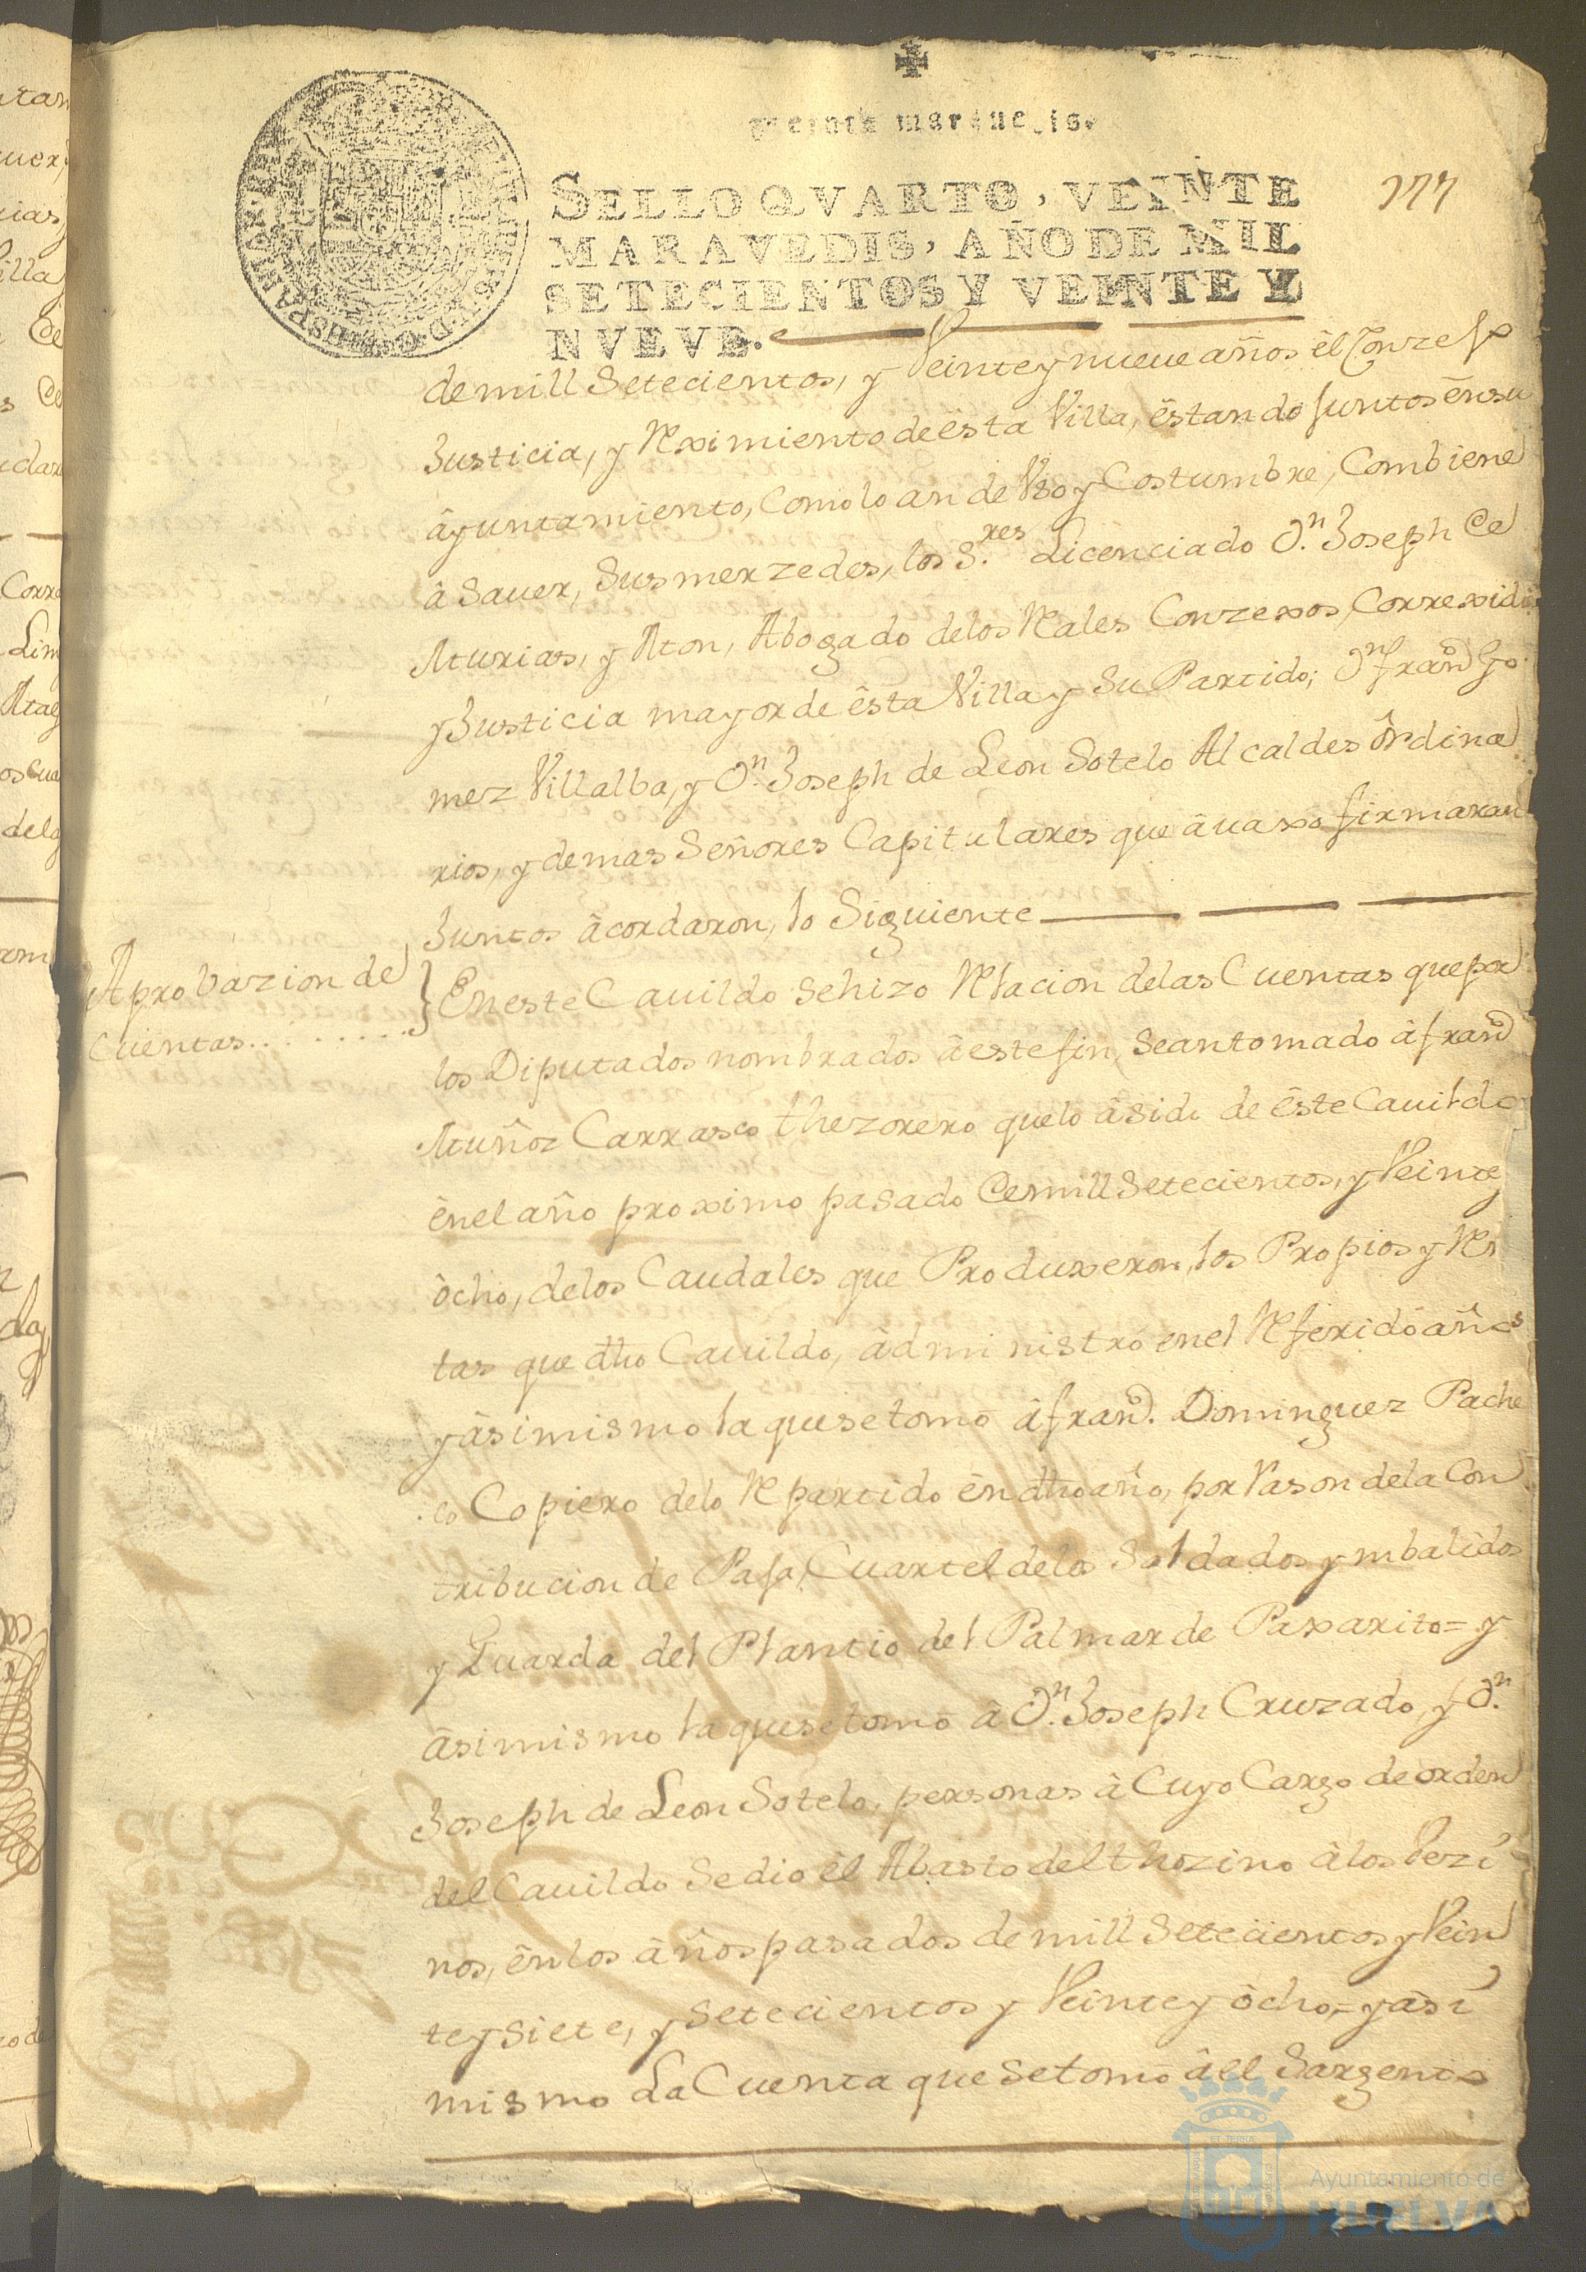 SELLO QVARTO, VEINTE
MARAVEDIS, AÑO DE MIL
SETECIENTOS Y VEINTE Y
NVEVE.
177
de mill Setecientos, y Veinte y nueue años êl Conzejo
Justicia, y Reximiento de êsta Villa, êstando juntos ên su
âyuntamiento, Como lo an de Vso y Costumbre, Combiene
â Sauer, Sus merzedes, los S.res Licenciado D.n Joseph de
Aturias, y Aton, Abogado de los Reales Conzexos, Correxidor
y Justicia mayor de êsta Villa y Su Partido; D.n fran.co Go
mez Villalba, y D.n Joseph de Leon Sotelo Alcaldes ôrdina
rios, y demas Señores Capitulares que âuaxo firmaran
Juntos âcordaron, lo Siguiente
Aprobazion de
Cuentas
En este Cauildo Se hizo Relacion de las Cuentas que por
los Diputados nombrados â este fin, Se an tomado â fran.co
Muñoz Carrasco thezorero que lo â sido de êste Cauildo
ên el año proximo pasado de mill Setecientos, y Veinte y
ôcho, de los Caudales que Produxeron, los Propios y Ren
tas que dho Cauildo, âdministró en el Referido año
y âsimismo la que se tomó â fran.co Dominguez Pache
co Copiero de lo Repartido ên dho año, por Rason de la Con
tribucion de Paja, Cuartel de los Soldados ynbalidos
y Guarda del Plantio del Palmar de Paxarito = y
âsimismo la que se tomó â D.n Joseph Cruzado, y D.n
Joseph de Leon Sotelo, personas â Cuyo Cargo de orden
del Cauildo Se dio êl Abasto del thozino â los Vezi
nos, ên los âños pasados de mill Setecientos y Vein
te y Siete, y Setecientos y Veinte y ôcho = y âsi
mismo La Cuenta que Se tomó âll Sargento
Ayuntamiento de
HUELVA